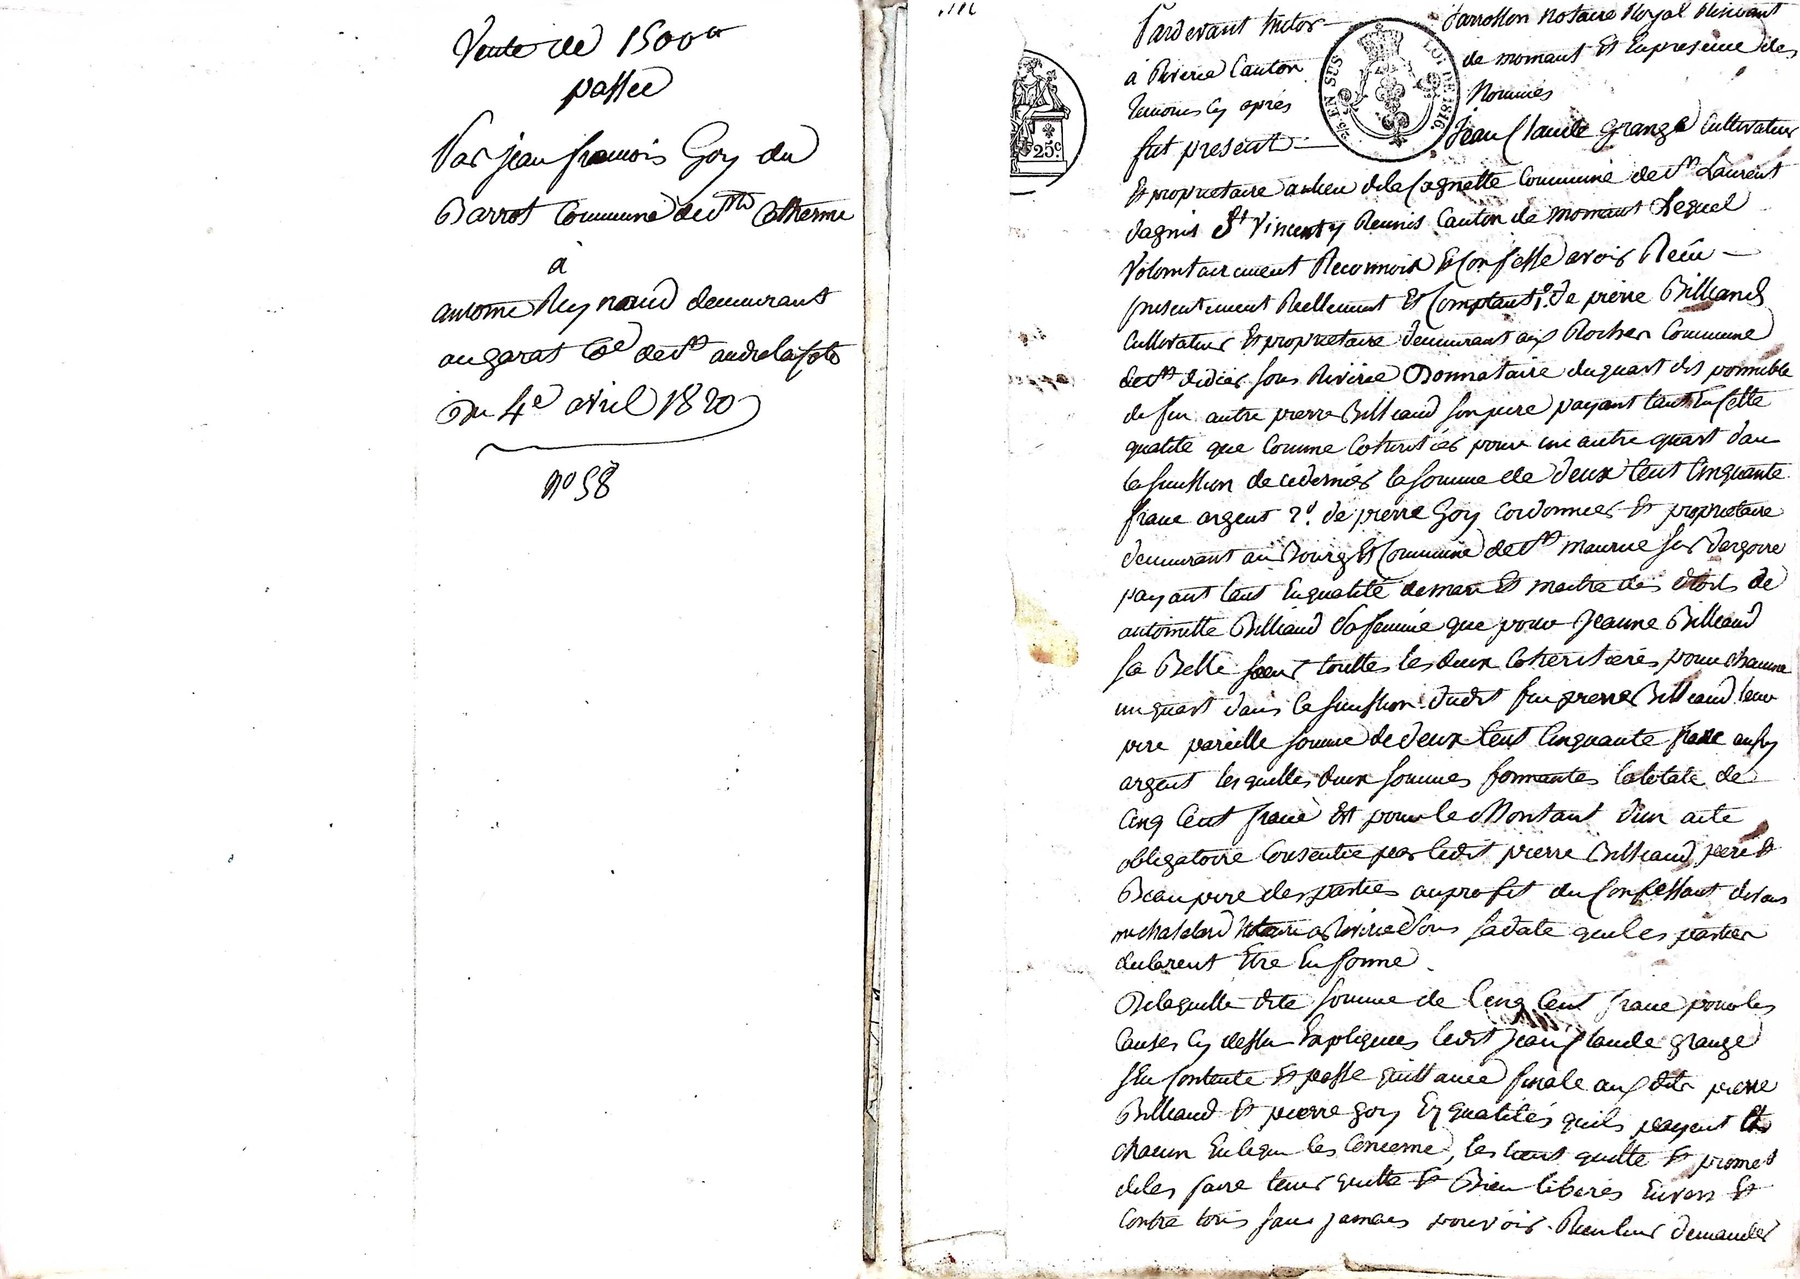 Vente de 1500 tt
passée
Par jean francois Goy du
Barrot Commune de Ste Catherine
à
antoine Reynaud demeurant
au garat Coe de St andré la Cote
Du 4e avril 1820
no 58
Pardevant Victor Jarrosson notaire Royal Resident
à Riverie Canton de mornant Et En presence des
temoins Cy après Nommés
fut present Jean Claude grange Cultivateur
Et propriétaire au lieu de la Cognette Commune de St Laurent
dagnis St Vincent y Reunis Canton de mornant Lequel
Volontairement Reconnoit Et Confesse avoir Reçu
presentement Reellement Et Comptant 1o. de pierre Billiaud
Cultivateur Et propriétaire demeurant aux Rocher Commune
de St didier sous Riverie Donnataire du quart dis ponnible
de feu autre pierre Billiaud son pere payant tant En Cette
qualité que Comme Coheritier pour un autre quart dans
la sucession de ce dernier la somme de deux Cent Cinquante
franc argent 2o. de pierre Goy Cordonnier Et propriétaire
demeurant au Bourg Et Commune de St maurice sur dargoire
payant tant En qualité de mari Et maitre des droits de
antoinette Billiaud Sa femme que pour Jeanne Billiaud
sa Belle soeur touttes les deux Coheritieres pour chacune
un quart dans la sucession dudit feu pierre Billiaud leur
pere pareille somme de deux Cent Cinquante franc aussy
argent les quelles deux sommes formantes la totale de
Cinq Cent franc Est pour le Montant d'un acte
obligatoire Consentie par ledit pierre Billiaud pere Et
Beau pere des parties au profit du Confessant devant
me chatelard Notaire a Riverie Sous sa date que les parties
declarent Etre En forme.
De laquelle dite somme de Cinq Cent franc pour les
Causes Cy dessus Expliquees ledit Jean Claude grange
s'En Contente Et passe quittance finale aux dits pierre
Billiaud Et pierre goy Es qualités quils payent Et
chacun En Ce qui les Concerne, les tient quitte Et promet
de les faire tenir quitte Et Bien liberés Envers Et
Contre tous sans jamais pouvoir Rien leur demander
2/5 EN SUS LOI DE 1816
25c